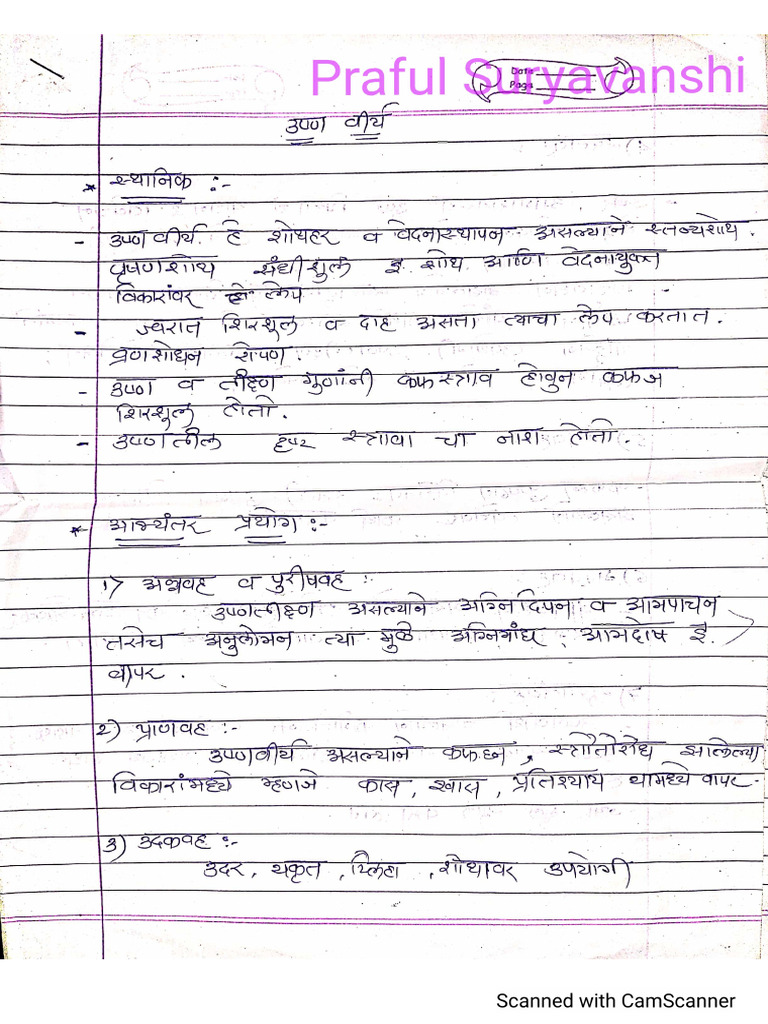 Praful Suryavanshi
Date
Page
उष्ण वीर्य
* स्थानिक :-
- उष्णवीर्य हे शोथहर व वेदनास्थापन असल्याने स्तन्यशोथ.
वृषणशोथ संधीशुल इ शोथ आणि वेदनायुक्त
विकारांवर लेप
- ज्वरात शिरशुल व दाह असता त्याचा लेप करतात.
व्रणशोधन रोपण.
- उष्ण व तीक्ष्ण गुणांनी कफस्त्राव होवुन कफज
शिरशुल होतो.
- उष्णतील स्त्रावा चा नाश होतो.
* आभ्यंतर प्रयोग :-
1) अन्नवह व पुरीषवह :
उष्णतीक्ष्ण असल्याने अग्निदिपन व आमपाचन
तसेच अनुलोमन त्या मुळे अग्निमांद्य . आमदोष इ.
वापर .
2) प्राणवह :-
उष्णवीर्य असल्याने कफघ्न , स्त्रौतोरोध झालेल्या
विकारांमध्ये म्हणजे कास , श्वास , प्रतिश्याय यामध्ये वापर.
3) उदकवह :-
उदर , यकृत , प्लिहा , शोथावर उपयोगी
Scanned with CamScanner